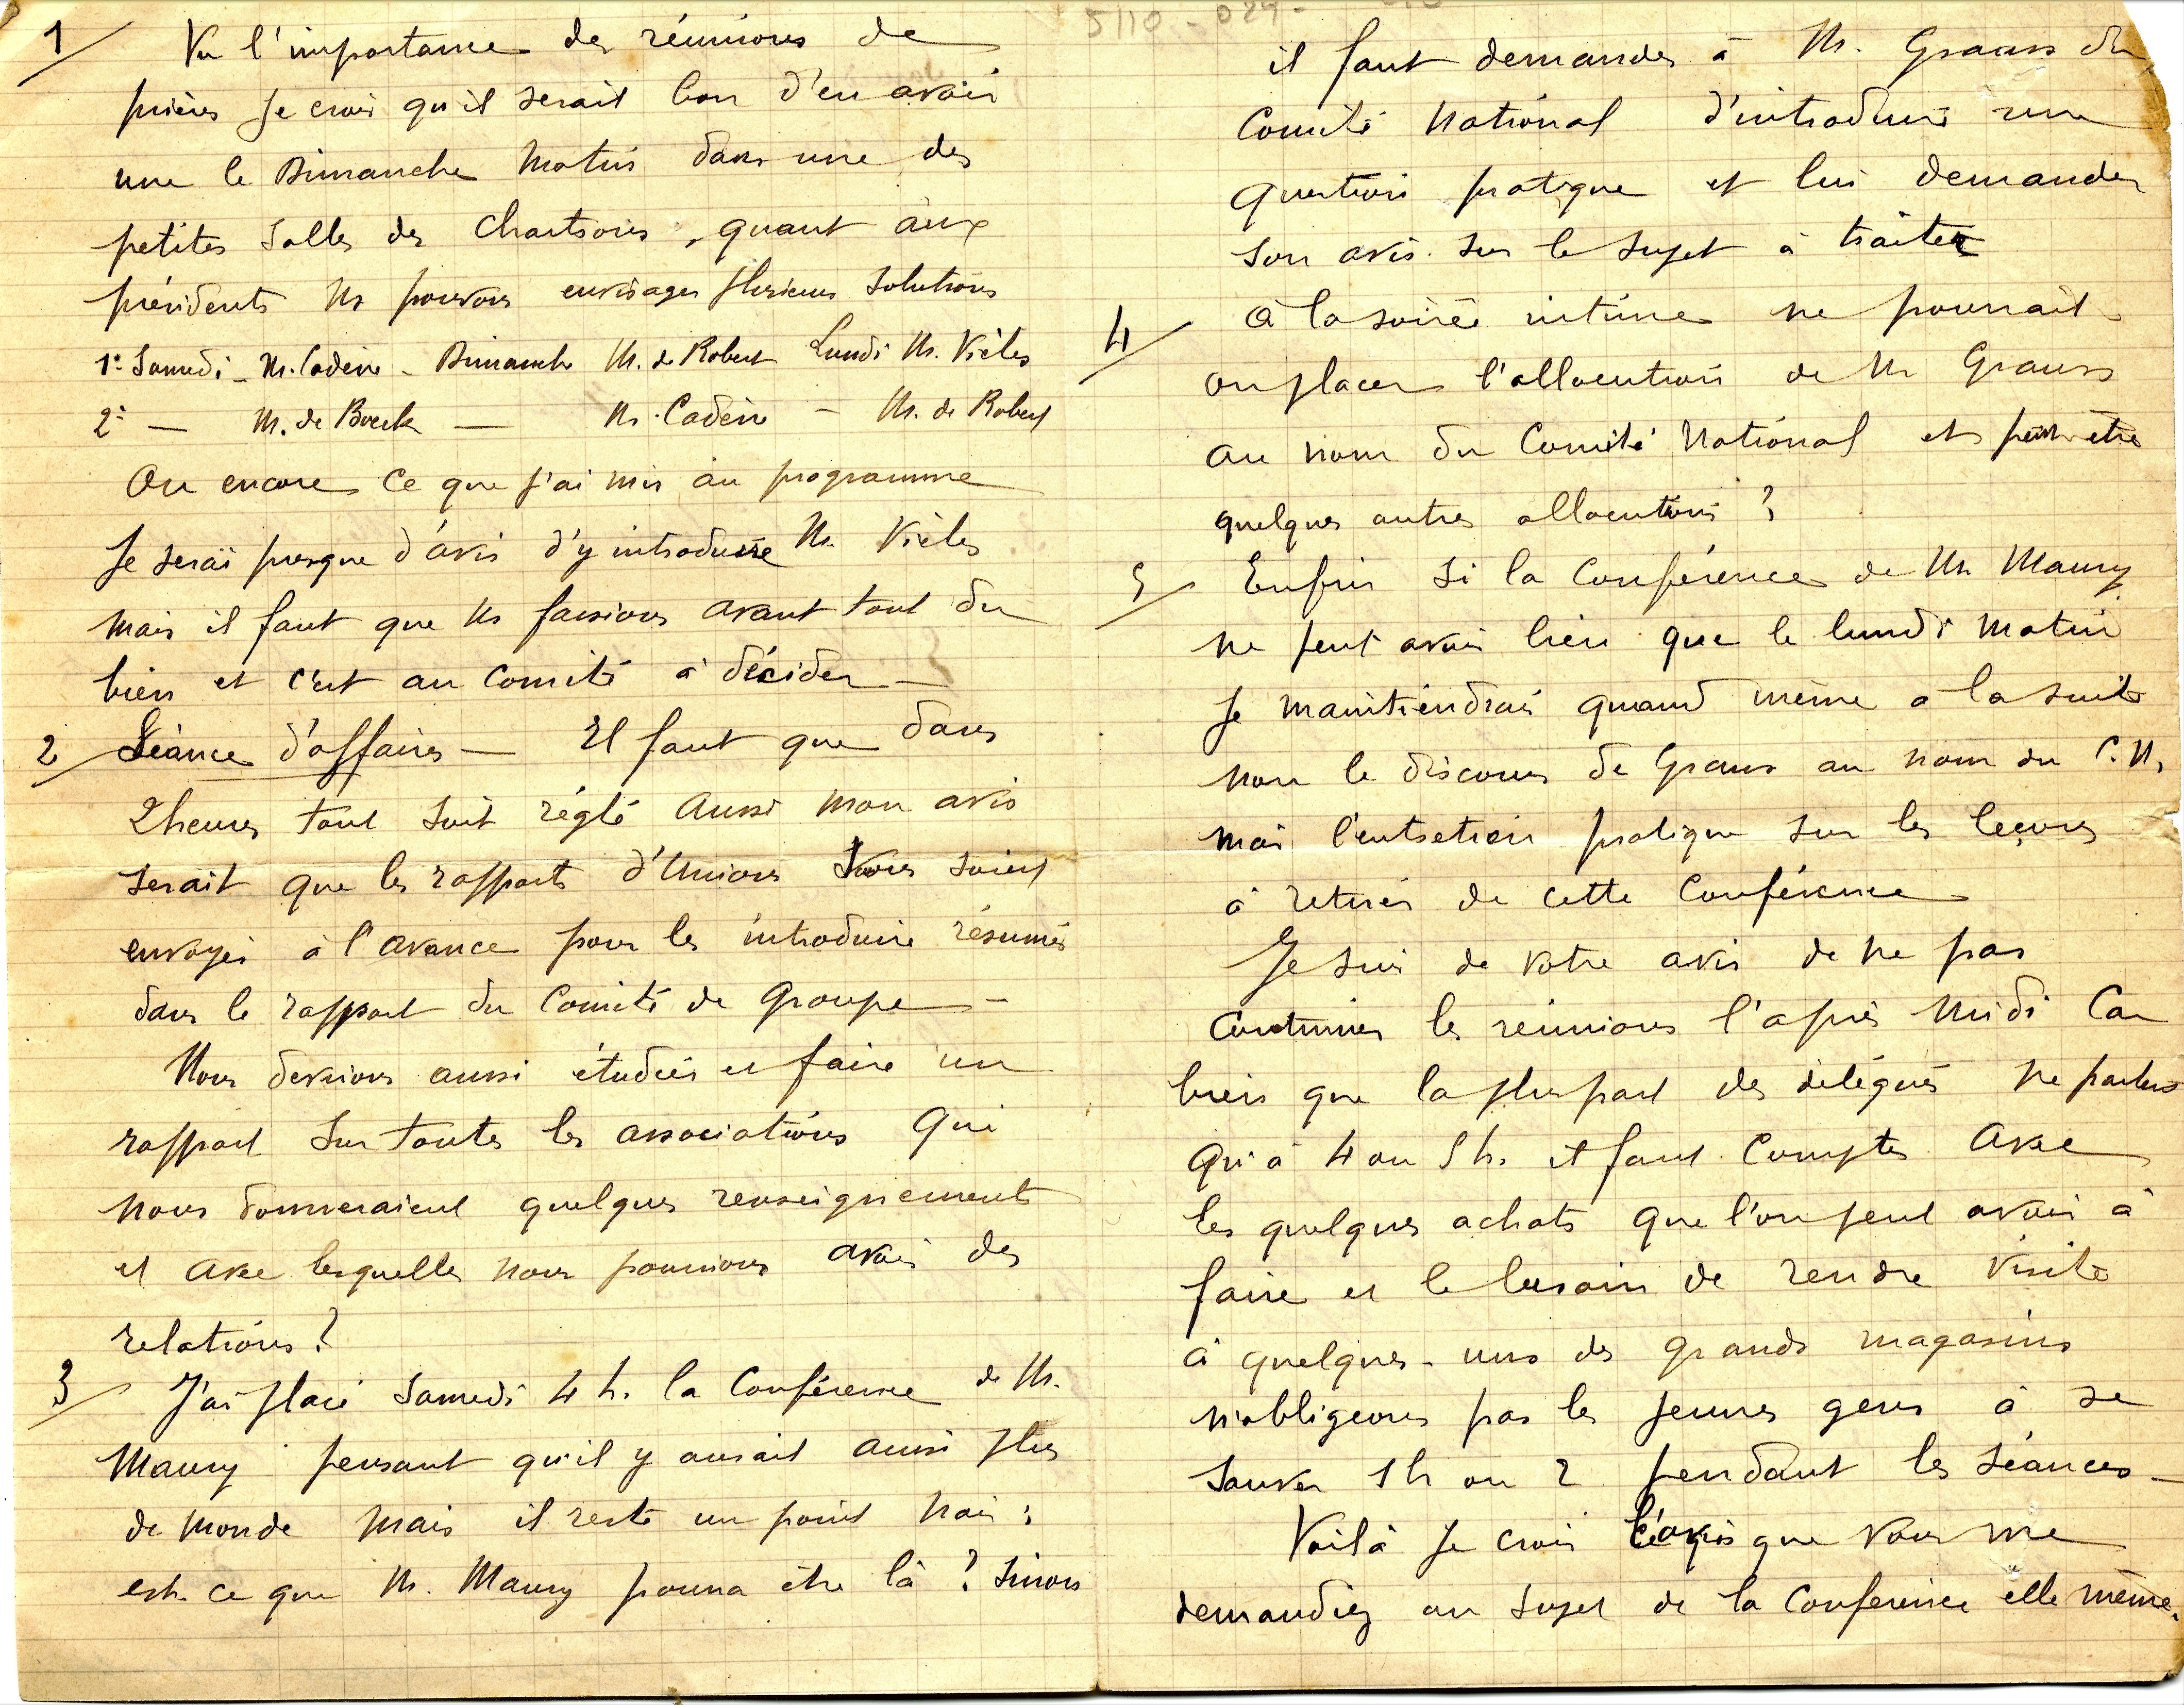 1/ Vu l'importance des réunions de
prières je crois qu'il serait bon d'en avoir
une le Dimanche matin dans une des
petites salles des Chartrons, quant aux
présidents ns pouvons envisager plusieurs solutions
1° Samedi - M. Cadène - Dimanche M. de Robert Lundi M. Vièles
2° — M. de Boeck — M. Cadène - M. de Robert
Ou encore ce que j'ai mis au programme
Je serai presque d'avis d'y introduire M. Vièles
mais il faut que ns fassions avant tout du
bien et c'est au comité à décider —
2/ Séance d'affaires — Il faut que dans
2 heures tout soit réglé aussi mon avis
serait que les rapports d'Unions soient
envoyés à l'avance pour les introduire résumés
dans le rapport du Comité de Groupe —
Nous devrions aussi étudier et faire un
rapport sur toutes les associations qui
nous donneraient quelques renseignements
et avec lesquelles nous pourrions avoir des
relations ?
3/ J'ai placé Samedi 4 h. la Conférence de M.
Maury pensant qu'il y aurait aussi plus
de monde mais il reste un point noir :
est-ce que M. Maury pourra être là ? Sinon
5110 - 024 -
il faut demander à M. Grauss du
Comité National d'introduire une
question pratique et lui demander
son avis sur le sujet à traiter
4/ A la soirée intime ne pourrait-
on placer l'allocution de M. Grauss
au nom du Comité National et peut-être
quelques autres allocutions ?
5/ Enfin si la Conférence de M. Maury
ne peut avoir lieu que le lundi matin
je maintiendrais quand même à la suite
non le discours de Grauss au nom du C.N.
mais l'entretien pratique sur les leçons
à retirer de cette Conférence
Je suis de votre avis de ne pas
continuer les réunions l'après midi Car
bien que la plupart des délégués ne partent
qu'à 4 ou 5 h. il faut compter avec
les quelques achats que l'on peut avoir à
faire et le besoin de rendre visite
à quelques-uns des grands magasins
n'obligeons pas les jeunes gens à se
sauver 1 h ou 2 pendant les séances —
Voilà je crois l'avis que vous me
demandiez au sujet de la Conférence elle même.